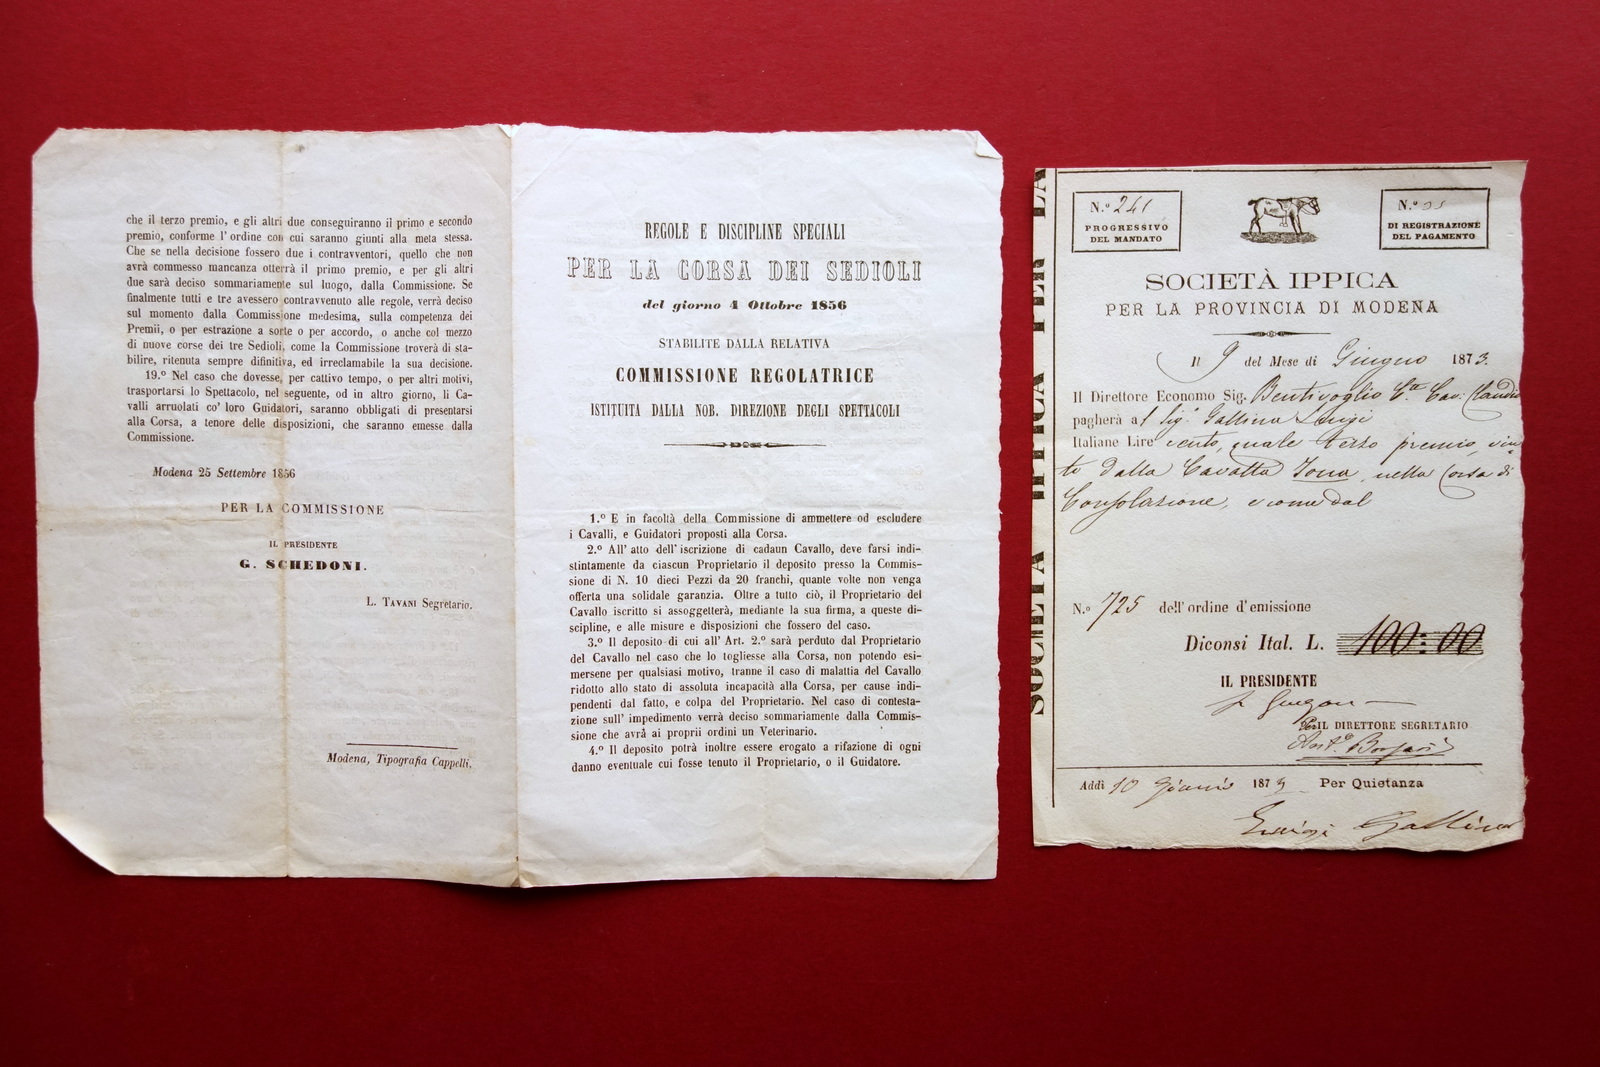 che il terzo premio, e gli altri due conseguiranno il primo e secondo
premio, conforme l'ordine con cui saranno giunti alla meta stessa.
Che se nella decisione fossero due i contravventori, quello che non
avrà commesso mancanza otterrà il primo premio, e per gli altri
due sarà deciso sommariamente sul luogo, dalla Commissione. Se
finalmente tutti e tre avessero contravvenuto alle regole, verrà deciso
sul momento dalla Commissione medesima, sulla competenza dei
Premii, o per estrazione a sorte o per accordo, o anche col mezzo
di nuove corse dei tre Sedioli, come la Commissione troverà di sta-
bilire, ritenuta sempre difinitiva, ed irreclamabile la sua decisione.
19.º Nel caso che dovesse, per cattivo tempo, o per altri motivi,
trasportarsi lo Spettacolo, nel seguente, od in altro giorno, li Ca-
valli arruolati co' loro Guidatori, saranno obbligati di presentarsi
alla Corsa, a tenore delle disposizioni, che saranno emesse dalla
Commissione.
Modena 25 Settembre 1856
PER LA COMMISSIONE
IL PRESIDENTE
G. SCHEDONI.
L. TAVANI Segretario.
Modena, Tipografia Cappelli.
REGOLE E DISCIPLINE SPECIALI
PER LA CORSA DEI SEDIOLI
del giorno 4 Ottobre 1856
STABILITE DALLA RELATIVA
COMMISSIONE REGOLATRICE
ISTITUITA DALLA NOB. DIREZIONE DEGLI SPETTACOLI
1.º E in facoltà della Commissione di ammettere od escludere
i Cavalli, e Guidatori proposti alla Corsa.
2.º All'atto dell'iscrizione di cadaun Cavallo, deve farsi indi-
stintamente da ciascun Proprietario il deposito presso la Commis-
sione di N. 10 dieci Pezzi da 20 franchi, quante volte non venga
offerta una solidale garanzia. Oltre a tutto ciò, il Proprietario del
Cavallo iscritto si assoggetterà, mediante la sua firma, a queste di-
scipline, e alle misure e disposizioni che fossero del caso.
3.º Il deposito di cui all'Art. 2.º sarà perduto dal Proprietario
del Cavallo nel caso che lo togliesse alla Corsa, non potendo esi-
mersene per qualsiasi motivo, tranne il caso di malattia del Cavallo
ridotto allo stato di assoluta incapacità alla Corsa, per cause indi-
pendenti dal fatto, e colpa del Proprietario. Nel caso di contesta-
zione sull'impedimento verrà deciso sommariamente dalla Commis-
sione che avrà ai proprii ordini un Veterinario.
4.º Il deposito potrà inoltre essere erogato a rifazione di ogni
danno eventuale cui fosse tenuto il Proprietario, o il Guidatore.
SOCIETÀ IPPICA PER LA
N.º 241
PROGRESSIVO
DEL MANDATO
N.º
DI REGISTRAZIONE
DEL PAGAMENTO
SOCIETÀ IPPICA
PER LA PROVINCIA DI MODENA
Il 9 del Mese di Giugno 1873.
Il Direttore Economo Sig. Bentivoglio Cte. Cav. Claudio
pagherà al Sig. Gallina Luigi
Italiane Lire cento, quale terzo premio, vin-
to dalla Cavalla, nella Corsa di
Consolazione, e come dal
N.º 725 dell'ordine d'emissione
Diconsi Ital. L. 100:00
IL PRESIDENTE
Per IL DIRETTORE SEGRETARIO
Addì 10 Giugno 1873 Per Quietanza
Luigi Gallina